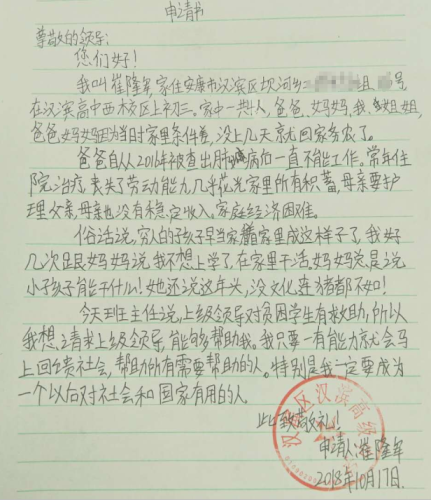 申请书
尊敬的领导:
您们好!
我叫崔隆年,家住安康市汉滨区坝河乡二 组 号
在汉滨高中西校区上初三。家中一共人,爸爸、妈妈、我、姐姐,
爸爸妈妈因为当时家里条件差,没上几天就回家务农了。
爸爸自从2016年被查出肺 病后一直不能工作。常年住
院治疗,丧失了劳动能力,几乎花光家里所有积蓄,母亲要护
理父亲,母亲也没有稳定收入,家庭经济困难。
俗话说,穷人的孩子早当家,家里成这样子了,我好
几次跟妈妈说我不想上学了,在家里干活,妈妈总是说
小孩子能干什么!她还说这年头,没文化连猪都不如!
今天班主任说,上级领导对贫困学生有救助,所以
我想请求上级领导,能够帮助我。我只要一有能力就会马
上回馈社会,帮助所有需要帮助的人。特别是我一定要成为
一个以后对社会和国家有用的人。
此致敬礼!
申请人:崔隆年
2018年10月17日.
汉滨区汉滨高级